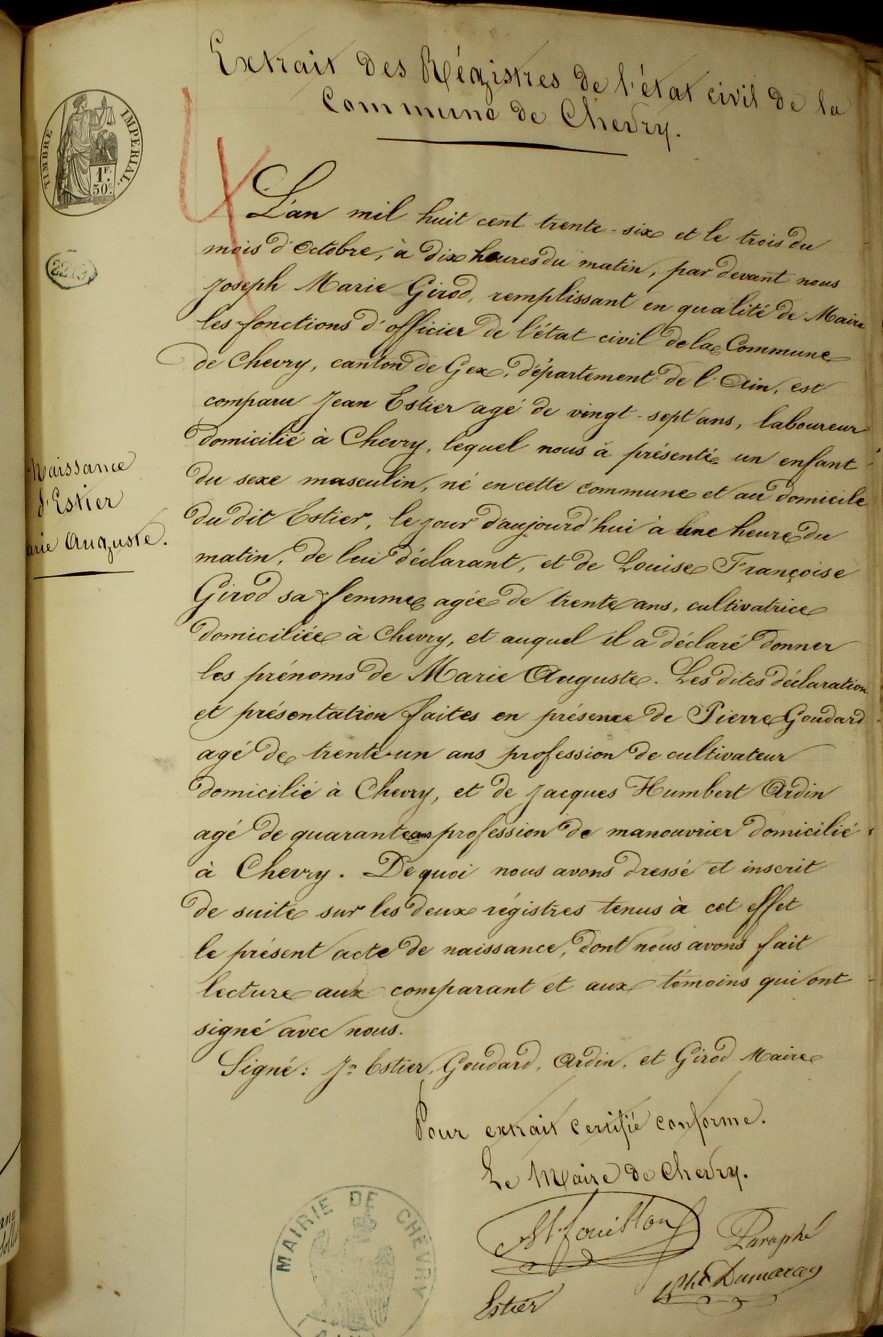 Extrait des Régistres de l'état civil de la
Commune de Chevry.
TIMBRE IMPERIAL
1F.
50c.
Naissance
d'Estier
arie Auguste.
L'an mil huit cent trente-six et le trois du
mois d'Octobre, à dix heures du matin, par devant nous
Joseph Marie Girod, remplissant en qualité de Maire
les fonctions d'officier de l'état civil de la Commune
de Chevry, canton de Gex, département de l'Ain, est
comparu Jean Estier agé de vingt-sept ans, laboureur
domicilié à Chevry, lequel nous à présenté un enfant
du sexe masculin, né en cette commune et au domicile
du dit Estier, le jour d'aujourd'hui à une heure du
matin, de lui déclarant, et de Louise Françoise
Girod sa femme agée de trente ans, cultivatrice
domiciliée à Chevry, et auquel il a déclaré donner
les prénoms de Marie Auguste. Les dites déclaration
et présentation faites en présence de Pierre Goudard
agé de trente un ans profession de cultivateur
domicilié à Chevry, et de Jacques Humbert Ardin
agé de quarante ans profession de manouvrier domicilié
à Chevry. De quoi nous avons dressé et inscrit
de suite sur les deux régistres tenus à cet effet
le présent acte de naissance, dont nous avons fait
lecture aux comparant et aux témoins qui ont
signé avec nous.
Signé: Jn Estier, Goudard, Ardin, et Girod Maire
Pour extrait certifié conforme.
Le Maire de Chevry.
Paraphé
Estier
MAIRIE DE CHEVRY
AIN